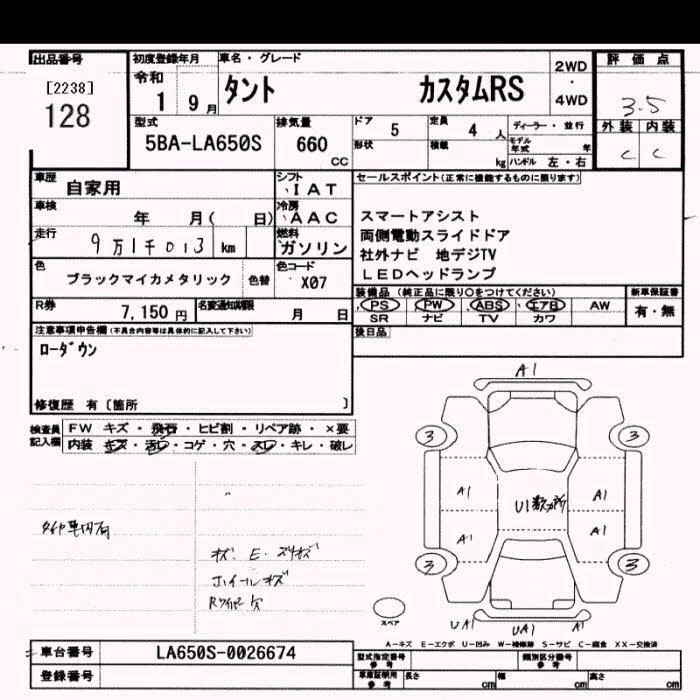 出品番号
[2238]
128
初度登録年月
令和
1 9月
車名・グレード
タント カスタムRS
2WD
・
4WD
評価点
3.5
外装 内装
C C
型式
5BA-LA650S
排気量
660
CC
ドア 5
形状
定員 4 人
積載 kg
ディーラー・並行
モデル年式 年
ハンドル 左・右
車歴
自家用
シフト
IAT
車検
年 月( 日)
冷房
AAC
走行
9万1千013 km
燃料
ガソリン
色
ブラックマイカメタリック
色替
色コード
X07
R券
7,150円
名変通知期限
月 日
セールスポイント(正常に機能するものに限ります)
スマートアシスト
両側電動スライドドア
社外ナビ 地デジTV
LEDヘッドランプ
装備品(純正品に限り○をつけてください)
新車保証書
PS PW ABS エアB AW
SR ナビ TV カワ
有・無
後日品
注意事項申告欄(不具合内容等は具体的に記入して下さい)
ローダウン
修復歴 有〔箇所 〕
検査員記入欄
FW キズ・飛石・ヒビ割・リペア跡・×要
内装 キズ・汚レ・コゲ・穴・スレ・キレ・破レ
キズ、E・スリキズ
ホイールキズ
Rワイパー欠
A1
3 3
A1 U1数カ所 A1
A1 A1
3 3
スペア
UA1 UA1 A1
A-キズ E-エクボ U-凹み W-補修跡 S-サビ C-腐食 XX-交換済
車台番号
LA650S-0026674
登録番号
型式指定番号
参考
類別区分番号
参考
車庫証明用
参考
長さ cm
幅 cm
高さ cm